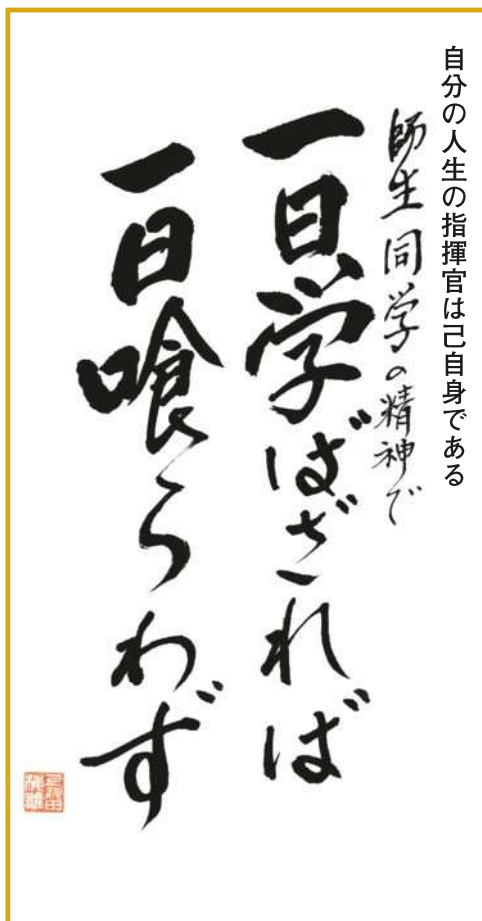 自分の人生の指揮官は己自身である
師生同学の精神で
一日学ばざれば
一日喰らわず